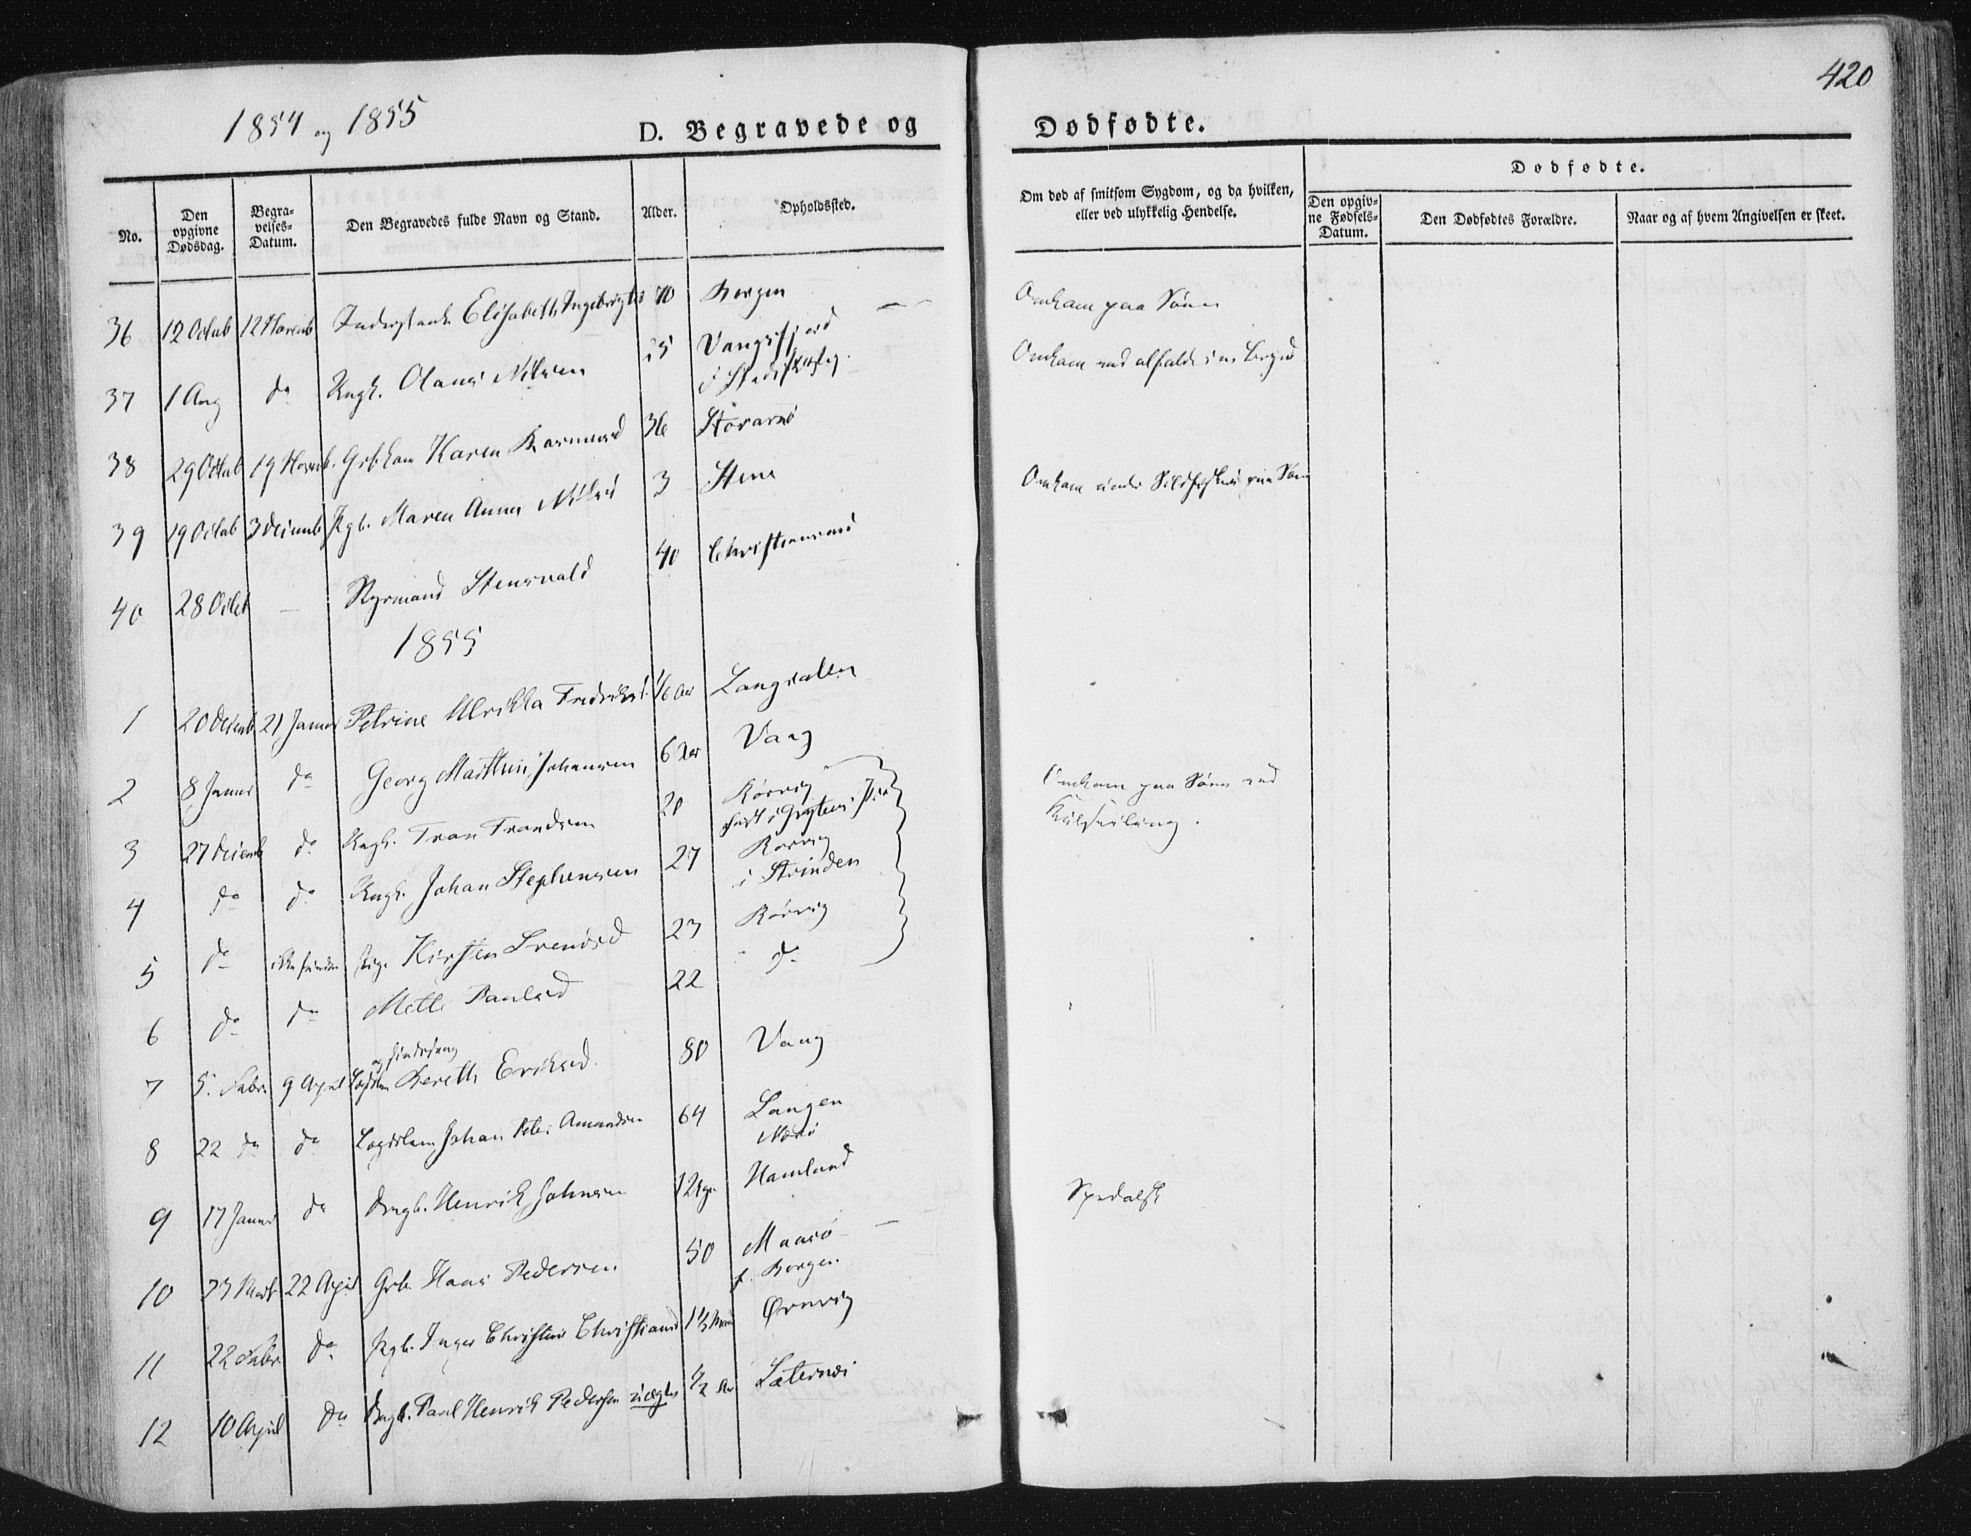 420
1854 og 1855
D. Begravede og Dødfødte.
No.
Den opgivne Dødsdag.
Begravelses-Datum.
Den Begravedes fulde Navn og Stand.
Alder.
Opholdssted.
Om død af smitsom Sygdom, og da hvilken, eller ved ulykkelig Hendelse.
Dødfødte.
Den opgivne Fødsels-Datum.
Den Dødfødtes Forældre.
Naar og af hvem Angivelsen er skeet.
36 12 Octob 12 Novemb Elisabeth Ingebrigts 70 Borgen Omkom paa Søen
37 1 Aug do Ungk. Olaus Nilsen 25 Vangsfjord Omkom ved
38 29 Octob 19 Novemb. Karen 36
39 29 Octob 3 Decemb Pgb. Maren Anna Nilsd 3 Stene Omkom under Sildfiskeri paa Søen
40 28 Octob — Styrmand Stensvald 40 Christianssund
1855
1 20 Decemb 21 Januar Petrine Ulrikka Fredriksd. 1/6 Aar
2 8 Januar do Georg Johansen 6 Uger Vang
3 27 Decemb do Ungk. Tron Trondsen 20 Rørvig Omkom paa Søen ved
Kulseiling.
4 do do Ungk. Johan Stephensen 27 Rørvig
i Strinden
5 do ikke funden Pige Kirsten 23 Rørvig
6 do do Mette Paulsd 22 do
7 5. Febr. 9 April Bereth Eriksd. 80 Vang
8 22 do do Lægdslem Johan Peter Amundsen 64 Langen
Nærø
9 17 Januar do Drgb. Henrik Johnsen 12 Uger Hamland
10 23 Marts 22 April Grb. Hans Pedersen 50 Maasø Spedalsk
f. Borgen
11 22 Febr. do Pgb. Inger Christine Christiansd Ørnvig
12 10 April do Drgb. Paul Henrik Pedersen uægte 1/2 Aar